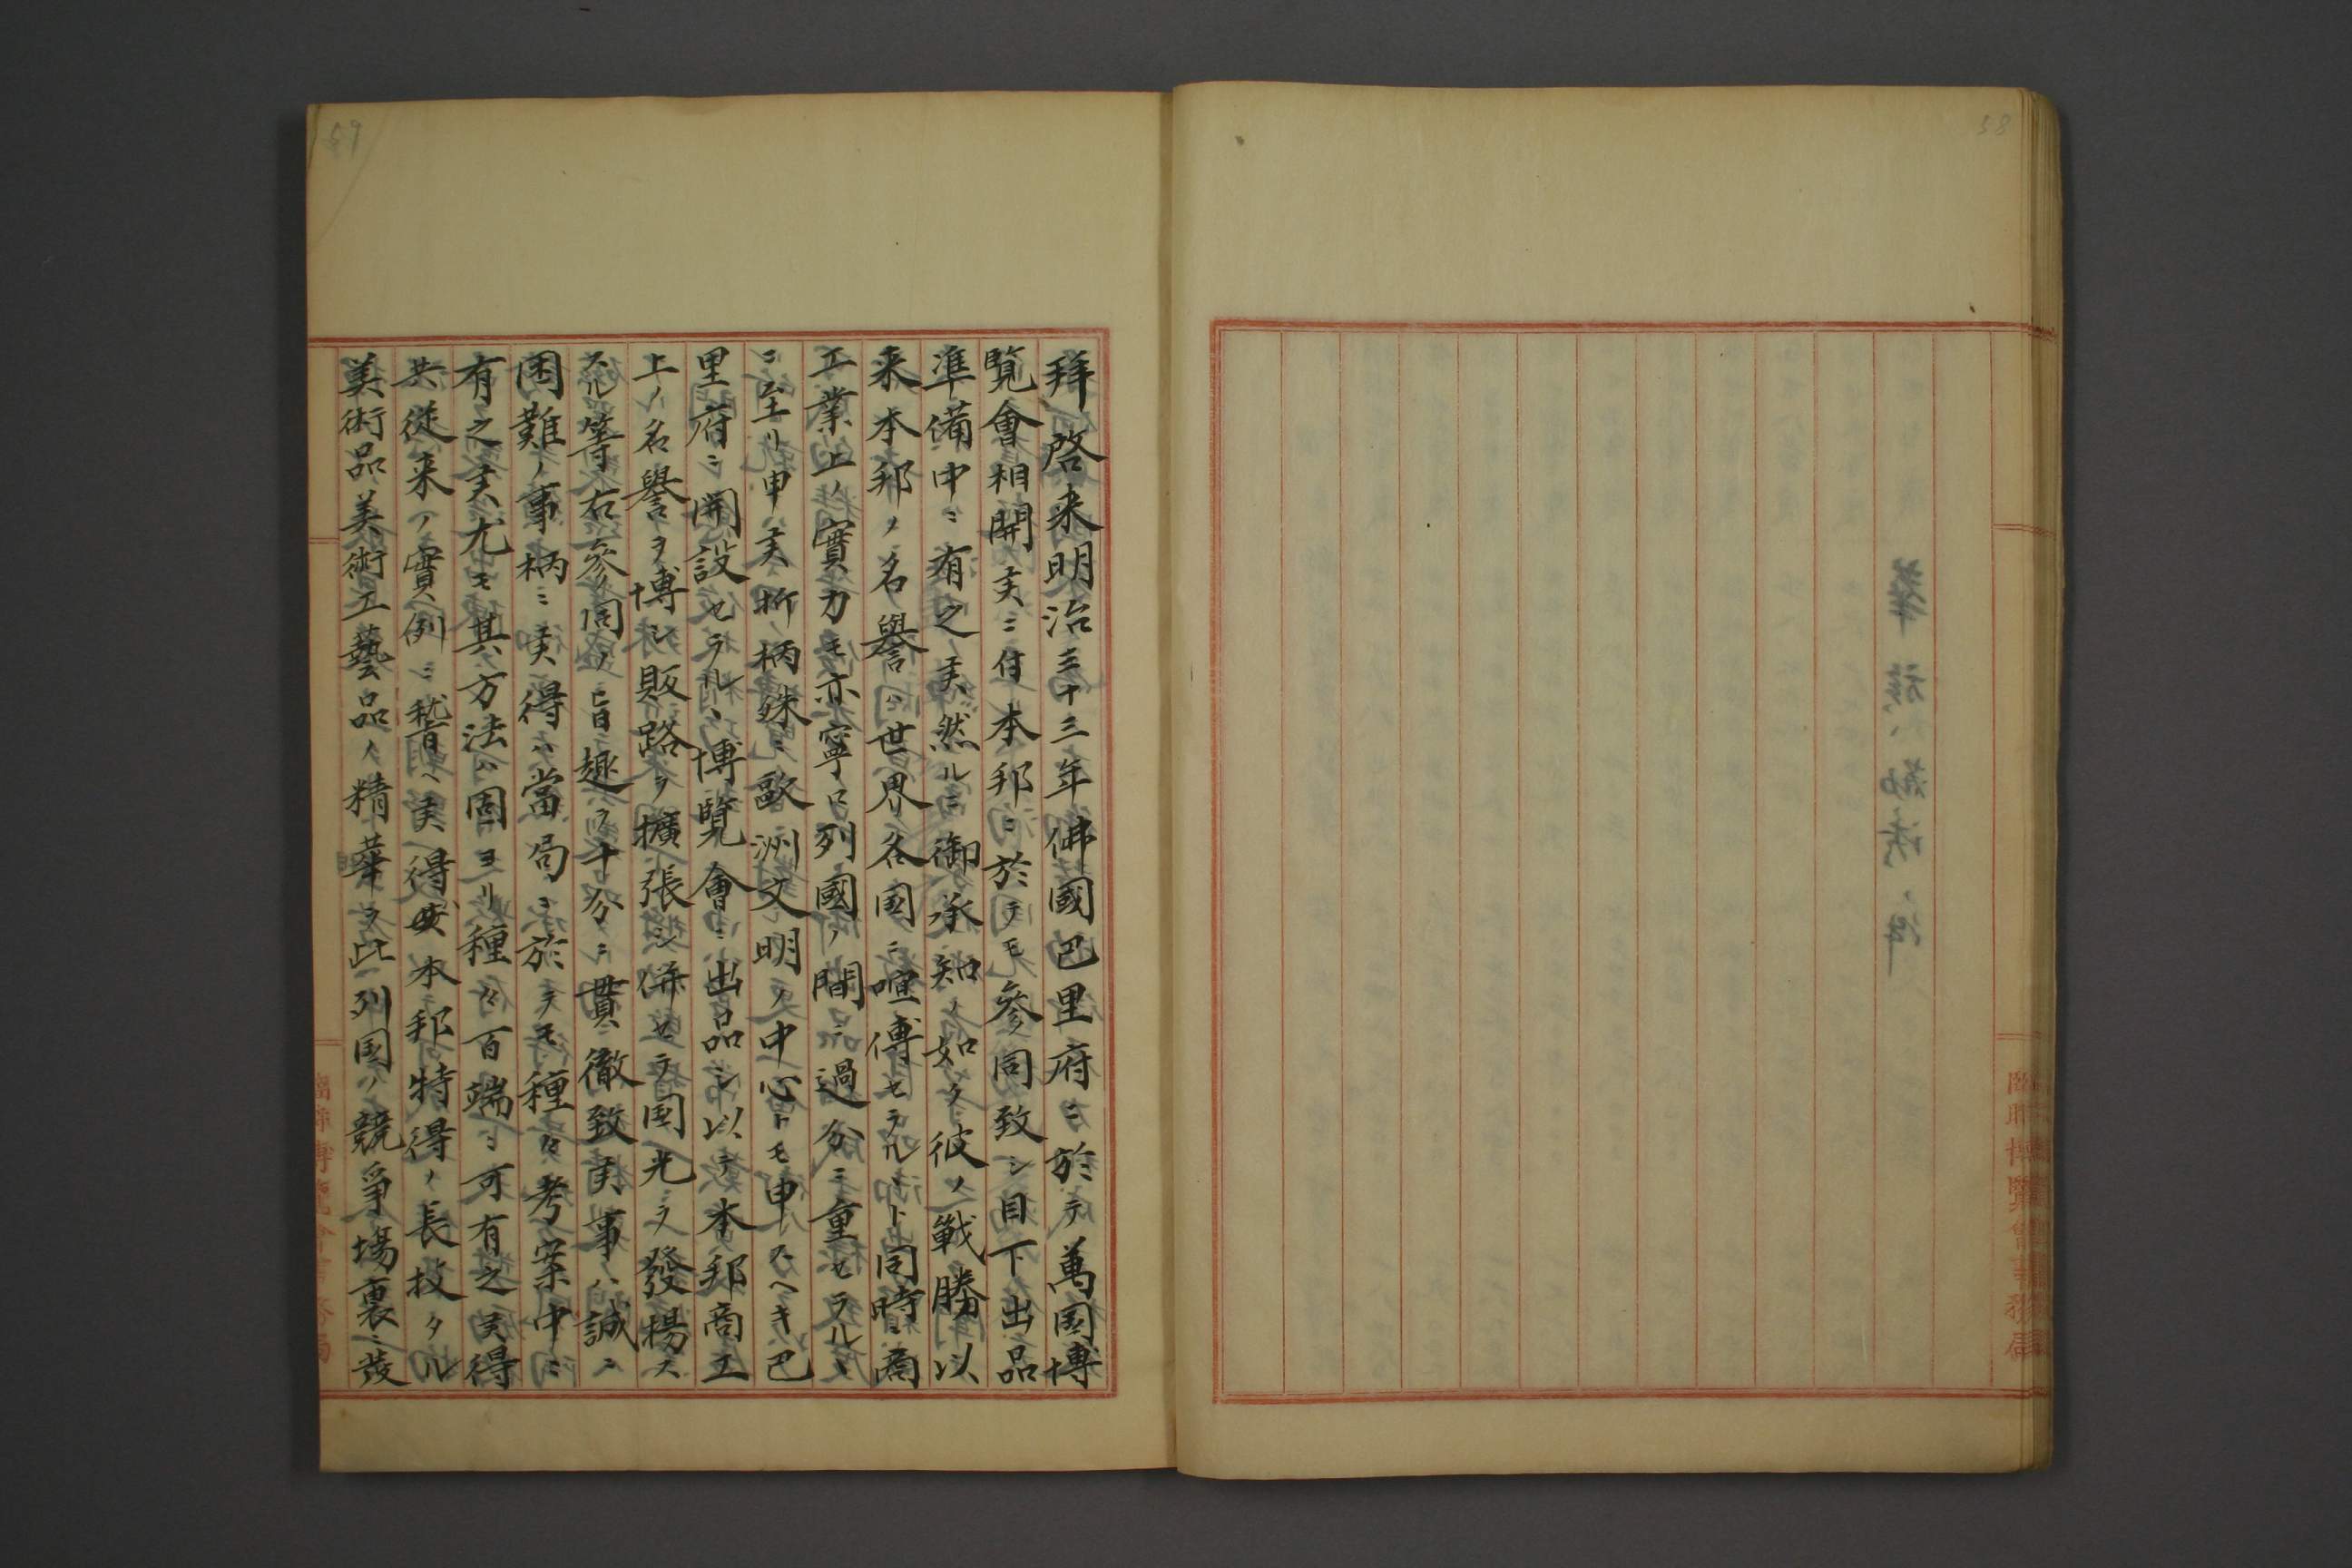 58
臨時博覽會事務局
拜啓来明治三十三年佛國巴里府ニ於テ萬国博
覽會相開候ニ付本邦ニ於テモ參同致シ目下出品
準備中ニ有之候然ルニ御承知ノ如ク彼ノ戦勝以
来本邦ノ名譽ハ世界各国ニ喧傳セラルヽト同時ニ商
工業上ノ實力モ亦寧ロ列國ノ間ニ過分ニ重セラルヽ
ニ至リ申候折柄殊ニ歐洲文明ノ中心トモ申スヘキ巴
里府ニ開設セラルヽ博覽會ニ出品シ以テ本邦商工
上ノ名譽ヲ博シ販路ヲ擴張シ併セテ国光ヲ發揚ス
スル等右參同ノ旨趣ヲ十分ニ貫徹致候事ハ誠ニ
困難ノ事柄ニ候得ハ當局ニ於テモ種々考案中ニ
有之候尤モ其方法ハ固ヨリ種々百端ニ可有之候得
共從来ノ實例ニ稽ヘ候得ハ本邦特得ノ長技タル
美術品美術工藝品ノ精華ヲ此列国ノ競爭場裏ニ發
59